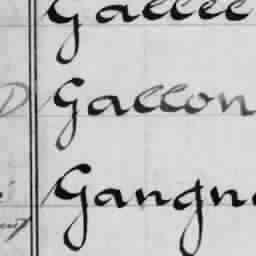 Gallee
D Gallon
Gangn